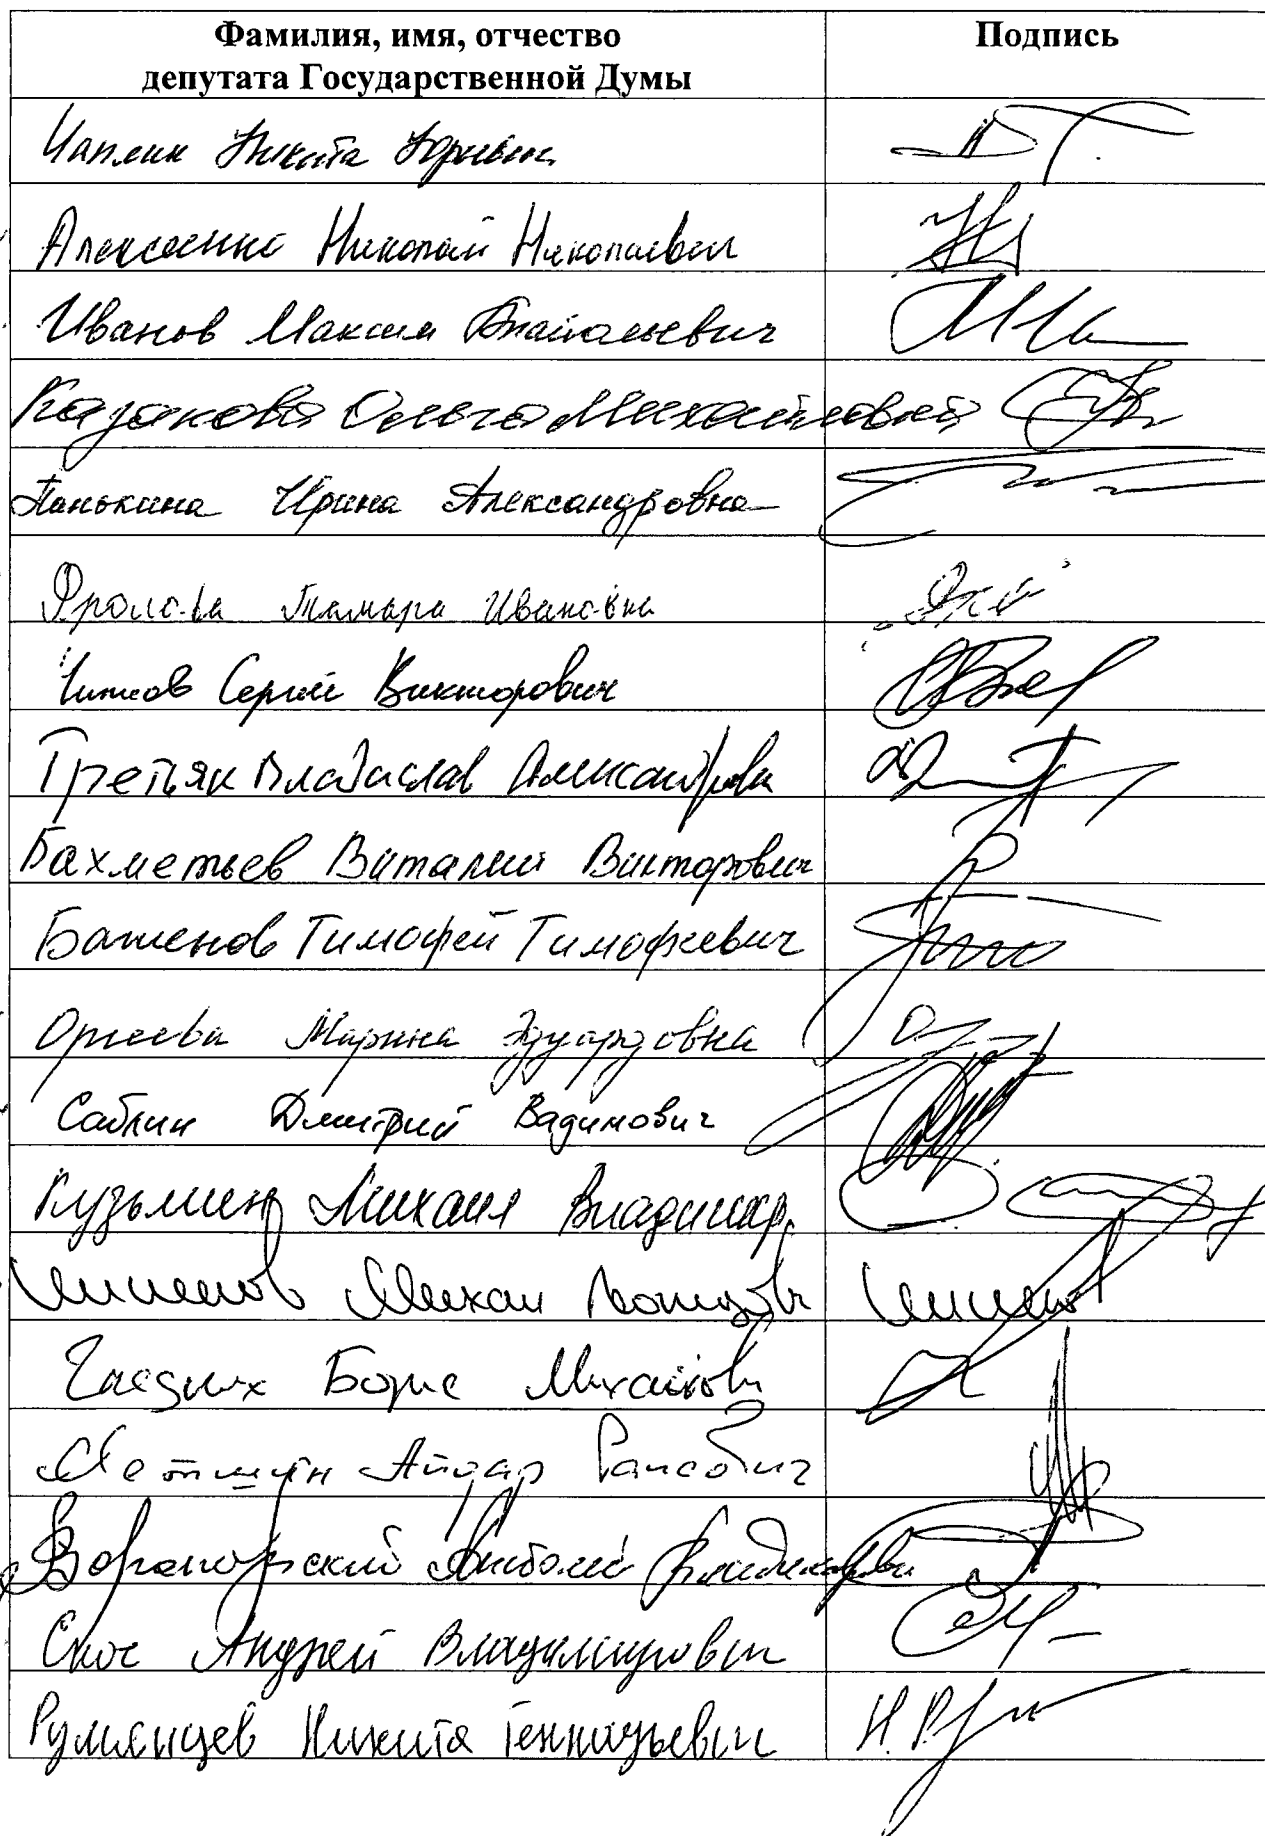 Фамилия, имя, отчество
депутата Государственной Думы
Подпись
Чаплин Никита Юрьевич
Алексеенко Николай Николаевич
Иванов Максим Анатольевич
Казакова Ольга Михайловна
Панькина Ирина Александровна
Фролова Тамара Ивановна
Чижов Сергей Викторович
Третьяк Владислав Александрович
Бахметьев Виталий Викторович
Баженов Тимофей Тимофеевич
Оргеева Марина Эдуардовна
Саблин Дмитрий Вадимович
Кузьмин Михаил Владимир.
Михаил
Гладких Борис Михайлович
Метшин Айдар Раисович
Вороновский Анатолий Владимирович
Скоч Андрей Владимирович
Румянцев Никита Геннадьевич
Н.Р.